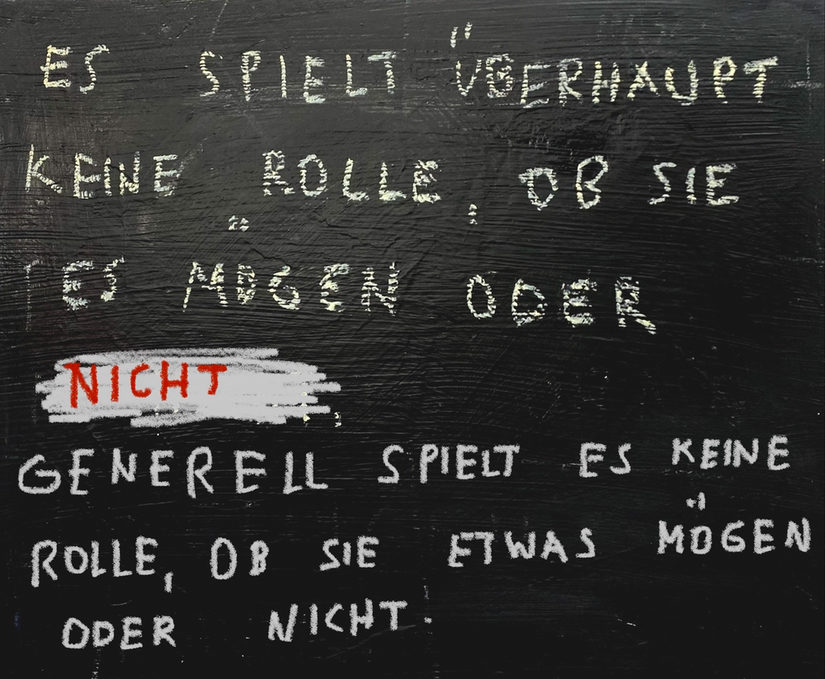 ES SPIELT ÜBERHAUPT
KEINE ROLLE, OB SIE
ES MÖGEN ODER
NICHT.
GENERELL SPIELT ES KEINE
ROLLE, OB SIE ETWAS MÖGEN
ODER NICHT.